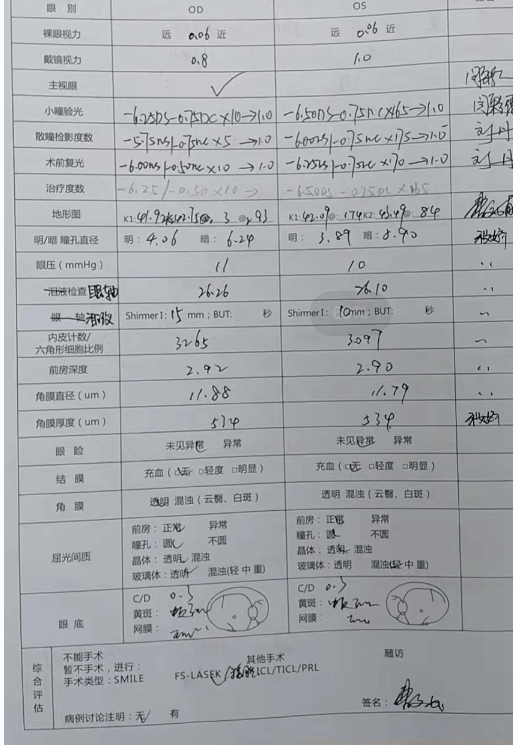 眼 别 OD OS
裸眼视力 远 0.06 近 远 0.06 近
戴镜视力 0.8 1.0
主视眼 ✓
小瞳验光 -6.25DS-0.75DC×10→1.0 -6.50DS-0.75DC×165→1.0
散瞳检影度数 -5.75DS/-0.75DC×5→1.0 -6.00DS/-0.75DC×175→1.0
术前复光 -6.00DS/-0.50DC×10→1.0 -6.25DS/-0.75DC×170→1.0
治疗度数 -6.25/-0.50×10→ -6.50DS-0.75DC×165
地形图 K1:41.92@ 3 @ 93 K1:42.09@ 174 K2:43.49@ 84
明/暗 瞳孔直径 明: 4.06 暗: 6.24 明: 3.89 暗: 5.90
眼压(mmHg) 11 10
泪液检查 眼轴 26.26 26.10
眼 轴 泪液 ShirmerI: 15 mm; BUT: 秒 ShirmerI: 10 mm; BUT: 秒
内皮计数/
六角形细胞比例 3265 3097
前房深度 2.92 2.90
角膜直径(um) 11.88 11.79
角膜厚度(um) 534 534
眼 睑 未见异常 异常 未见异常 异常
结 膜 充血(□无 □轻度 □明显) 充血(□无 □轻度 □明显)
角 膜 透明 混浊(云翳、白斑) 透明 混浊(云翳、白斑)
屈光间质
前房: 正常 异常 前房: 正常 异常
瞳孔: 圆 不圆 瞳孔: 圆 不圆
晶体: 透明 混浊 晶体: 透明 混浊
玻璃体: 透明 混浊(轻 中 重) 玻璃体: 透明 混浊(轻 中 重)
眼 底
C/D 0.3 C/D 0.3
黄斑: 黄斑:
网膜: 网膜:
综合评估
不能手术 其他手术 随访
暂不手术,进行:
手术类型: SMILE FS-LASEK ✓ ICL/TICL/PRL
签名:
病例讨论注明: 无✓ 有